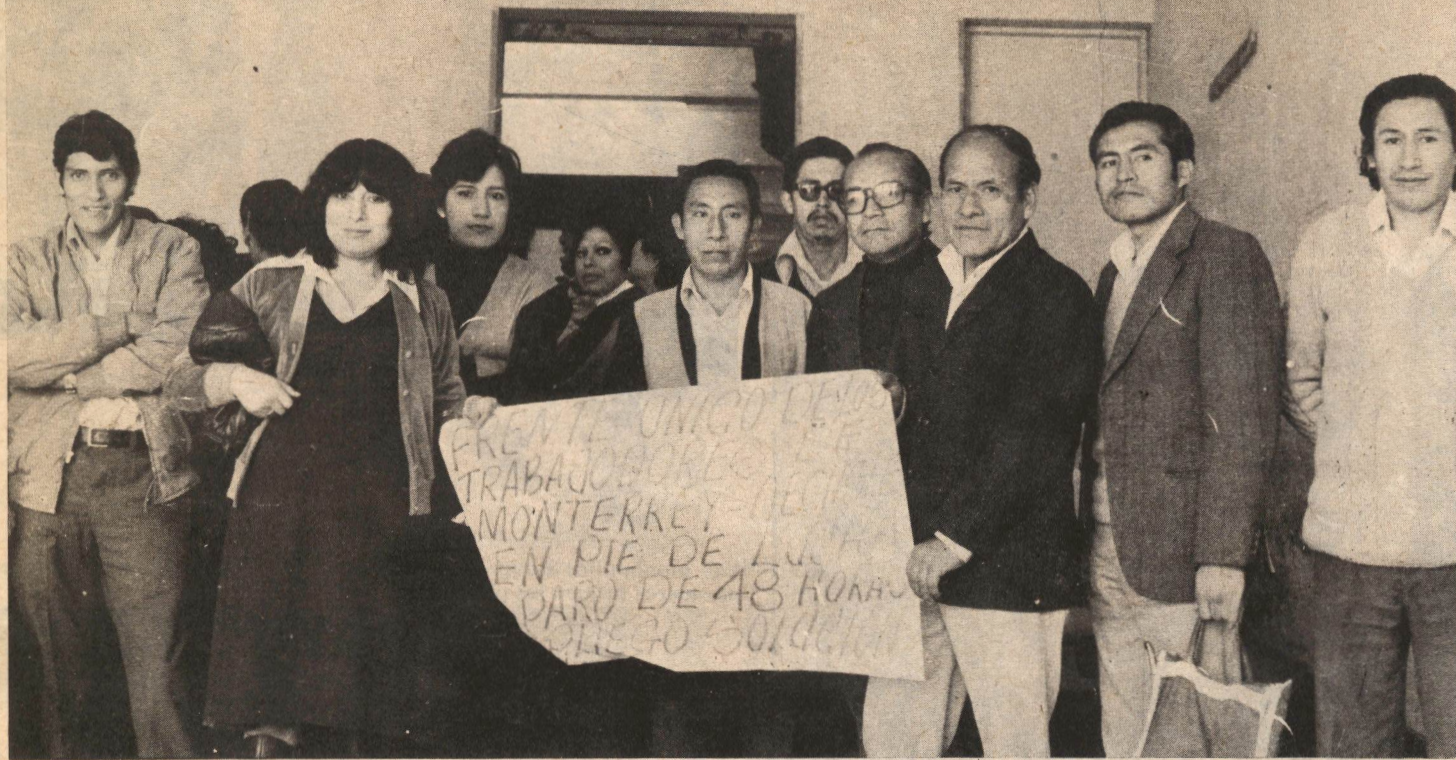 FRENTE UNICO DE LOS
TRABAJODORES DE
MONTERREY
EN PIE DE LUCHA
PARO DE 48 HORAS
PLIEGO SOLUCION